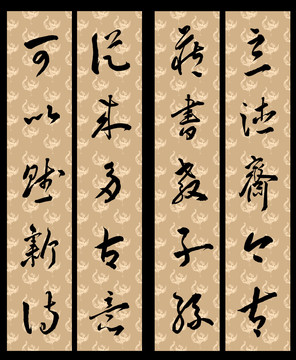 立德齋今古
藏書教子孫
從來多古意
可以賦新詩